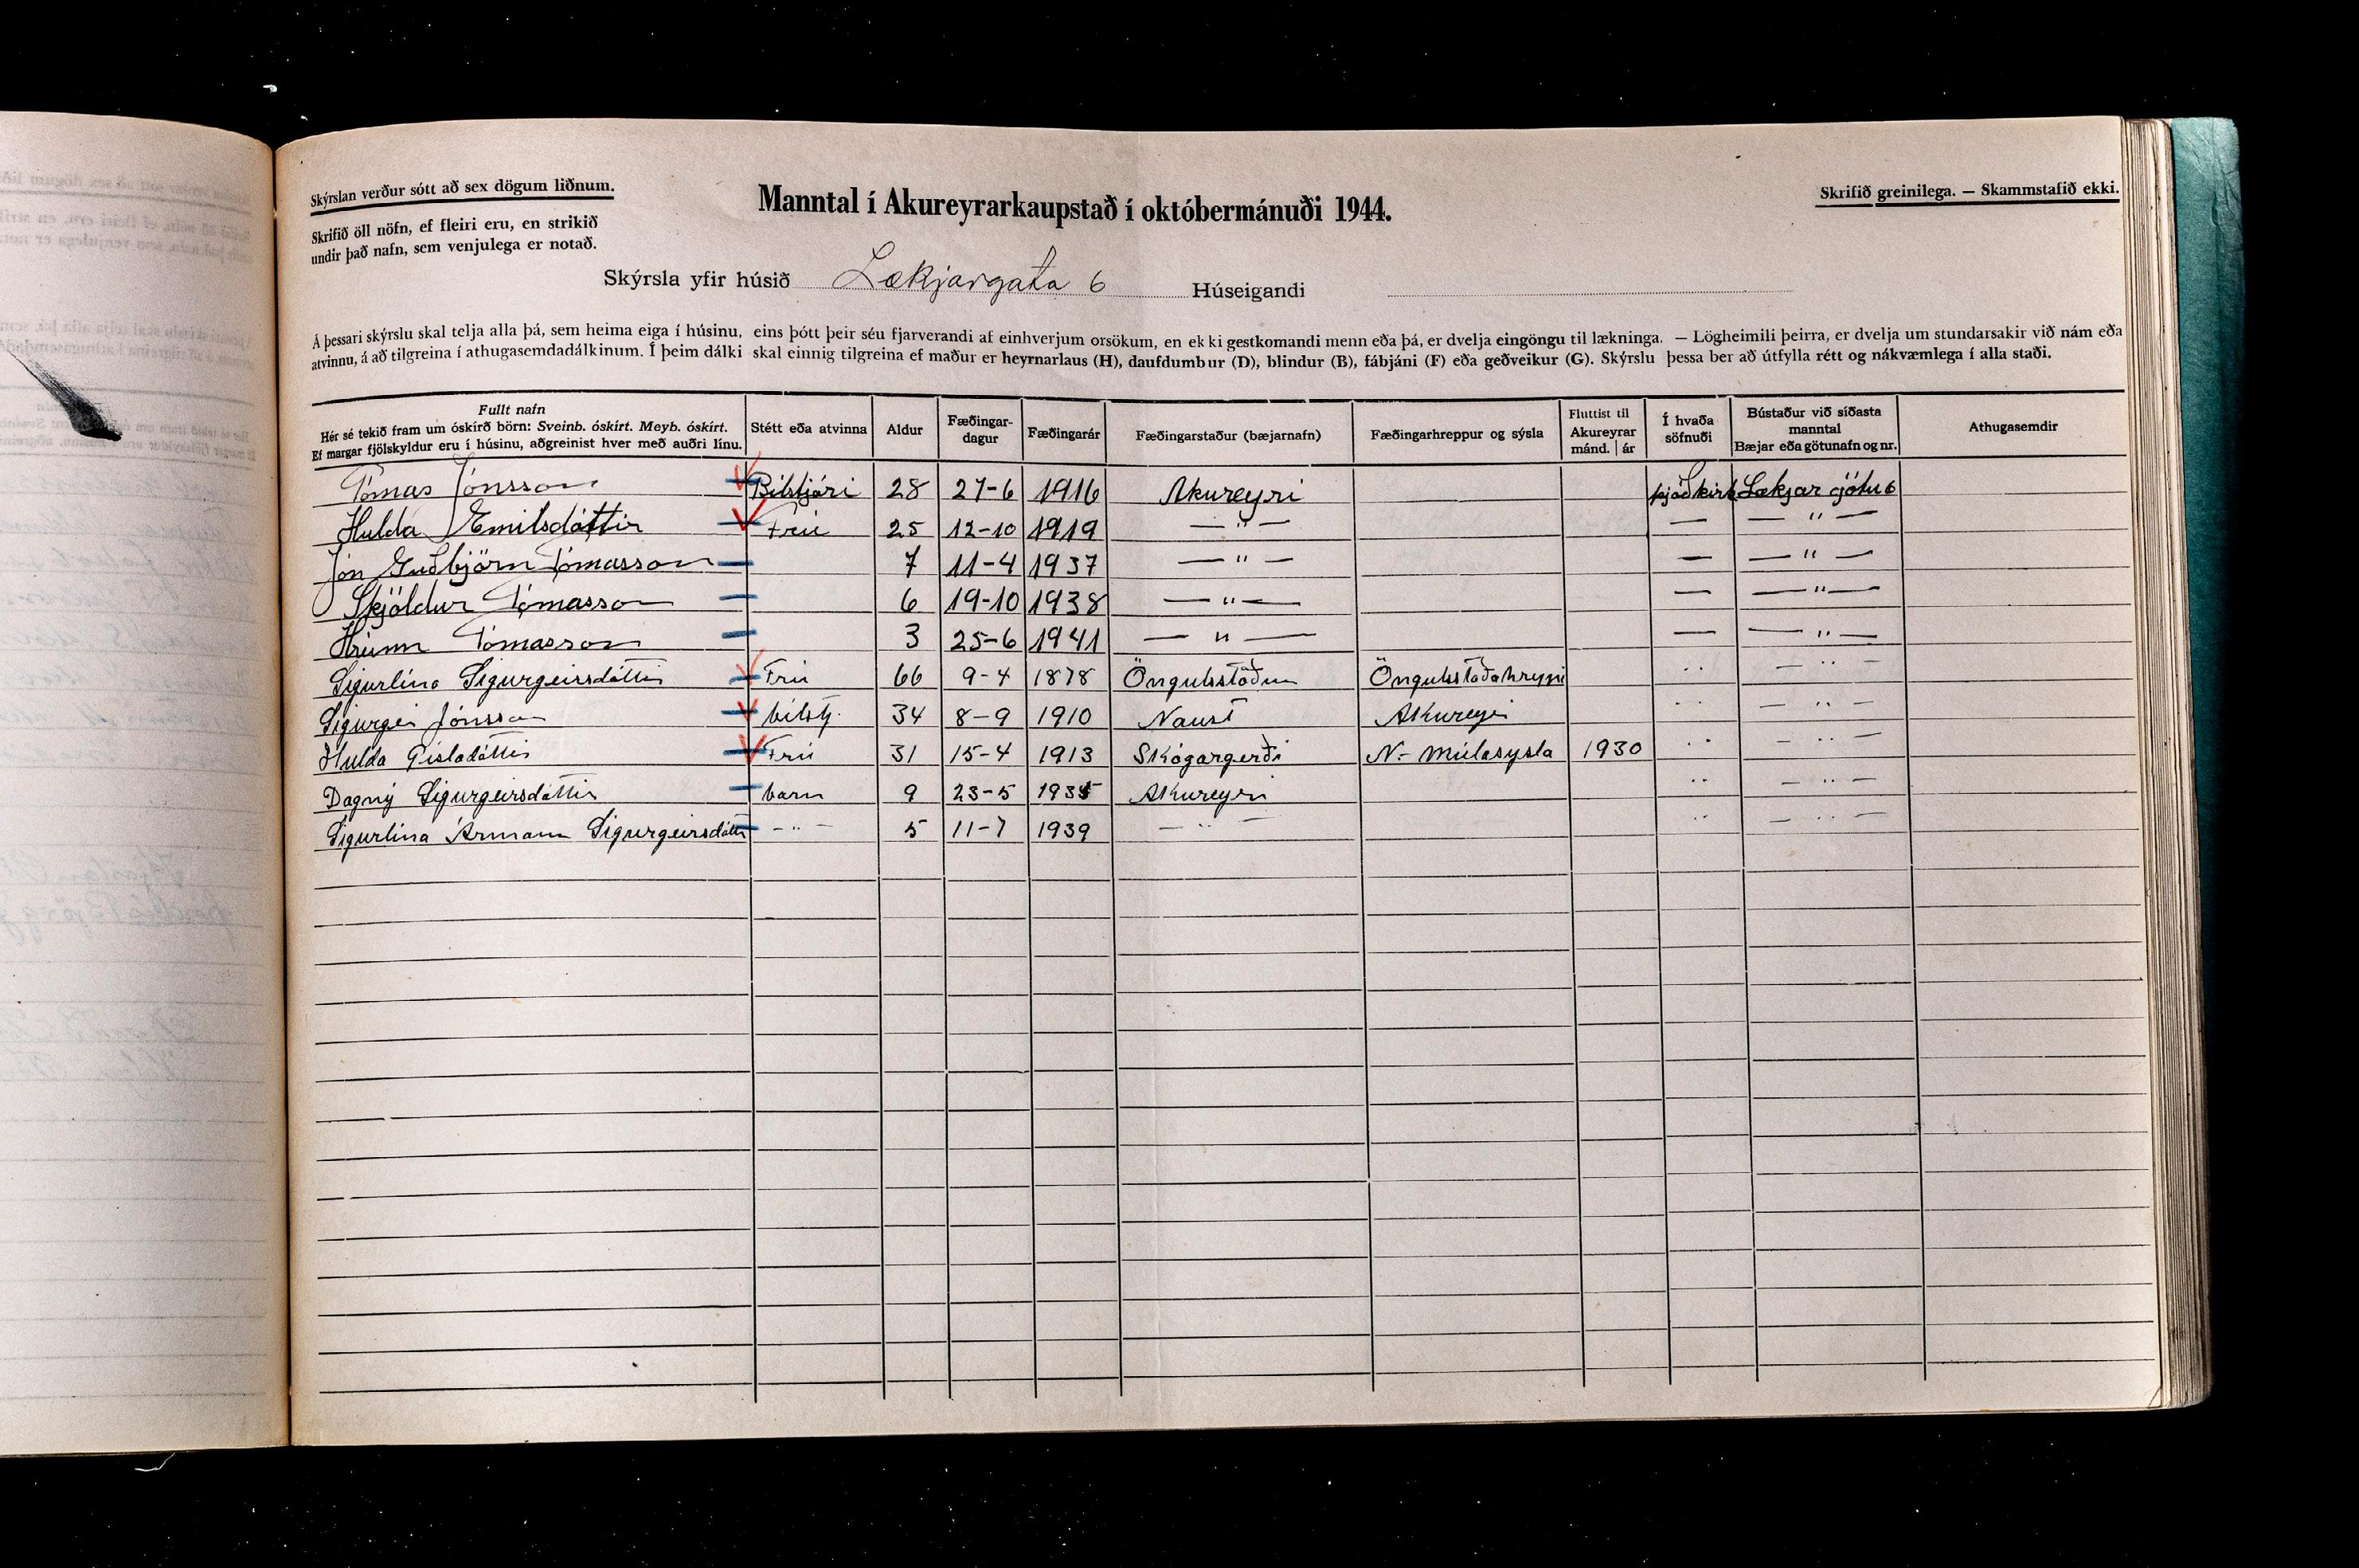 Skýrslan verður sótt að sex dögum liðnum.
Skrifið öll nöfn, ef fleiri eru, en strikið
undir það nafn, sem venjulega er notað.
Manntal í Akureyrarkaupstað í októbermánuði 1944.
Skrifið greinilega. — Skammstafið ekki.
Skýrsla yfir húsið Lækjargata 6 Húseigandi
Á þessari skýrslu skal telja alla þá, sem heima eiga í húsinu, eins þótt þeir séu fjarverandi af einhverjum orsökum, en ekki gestkomandi menn eða þá, er dvelja eingöngu til lækninga. — Lögheimili þeirra, er dvelja um stundarsakir við nám eða
atvinnu, á að tilgreina í athugasemdadálkinum. Í þeim dálki skal einnig tilgreina ef maður er heyrnarlaus (H), daufdumbur (D), blindur (B), fábjáni (F) eða geðveikur (G). Skýrslu þessa ber að útfylla rétt og nákvæmlega í alla staði.
Fullt nafn
Hér sé tekið fram um óskírð börn: Sveinb. óskírt. Meyb. óskírt.
Ef margar fjölskyldur eru í húsinu, aðgreinist hver með auðri línu.
Stétt eða atvinna
Aldur
Fæðingar-
dagur
Fæðingarár
Fæðingarstaður (bæjarnafn)
Fæðingarhreppur og sýsla
Fluttist til
Akureyrar
mánd. | ár
Í hvaða
söfnuði
Bústaður við síðasta
manntal
Bæjar eða götunafn og nr.
Athugasemdir
Tómas Jónsson Bílstjóri 28 27-6 1916 Akureyri þjóðkirk Lækjar götu 6
Hulda Emilsdóttir Frú 25 12-10 1919 — " — — — " —
Jón Guðbjörn Tómasson 7 11-4 1937 — " — — — " —
Skjöldur Tómasson 6 19-10 1938 — " — — — " —
Hrunn Tómasson 3 25-6 1941 — " — — — " —
Sigurlína Sigurgeirsdóttir Frú 66 9-4 1878 Öngulsstaðum Öngulsstaðahreppi " — " —
Sigurgeir Jónsson bílstj. 34 8-9 1910 Naust Akureyri " — " —
Hulda Gísladóttir Frú 31 15-4 1913 Skógargerði N.- Múlasýsla 1930 " — " —
Dagný Sigurgeirsdóttir barn 9 23-5 1935 Akureyri " — " —
Sigurlína Ármann Sigurgeirsdóttir - " - 5 11-7 1939 — " — " — " —